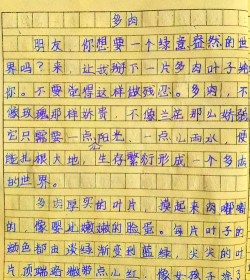 多肉
朋友，你想要一个绿意盎然的世
界吗？来，让我掰下一片多肉叶子给
你。不要觉得这样做残忍。多肉，不
像玫瑰那样娇贵，不像兰花那么娇弱
它只需要一点阳光，一点山雨水，便
能扎根大地，生存繁衍形成一个多肉
的世界。
多肉厚实的叶片，摸起来肉嘟嘟
的，像婴儿嫩嫩的脸蛋。每片叶子的
颜色都由淡绿渐变到蓝绿，尖尖的叶
片顶端略微带点红，像女孩子